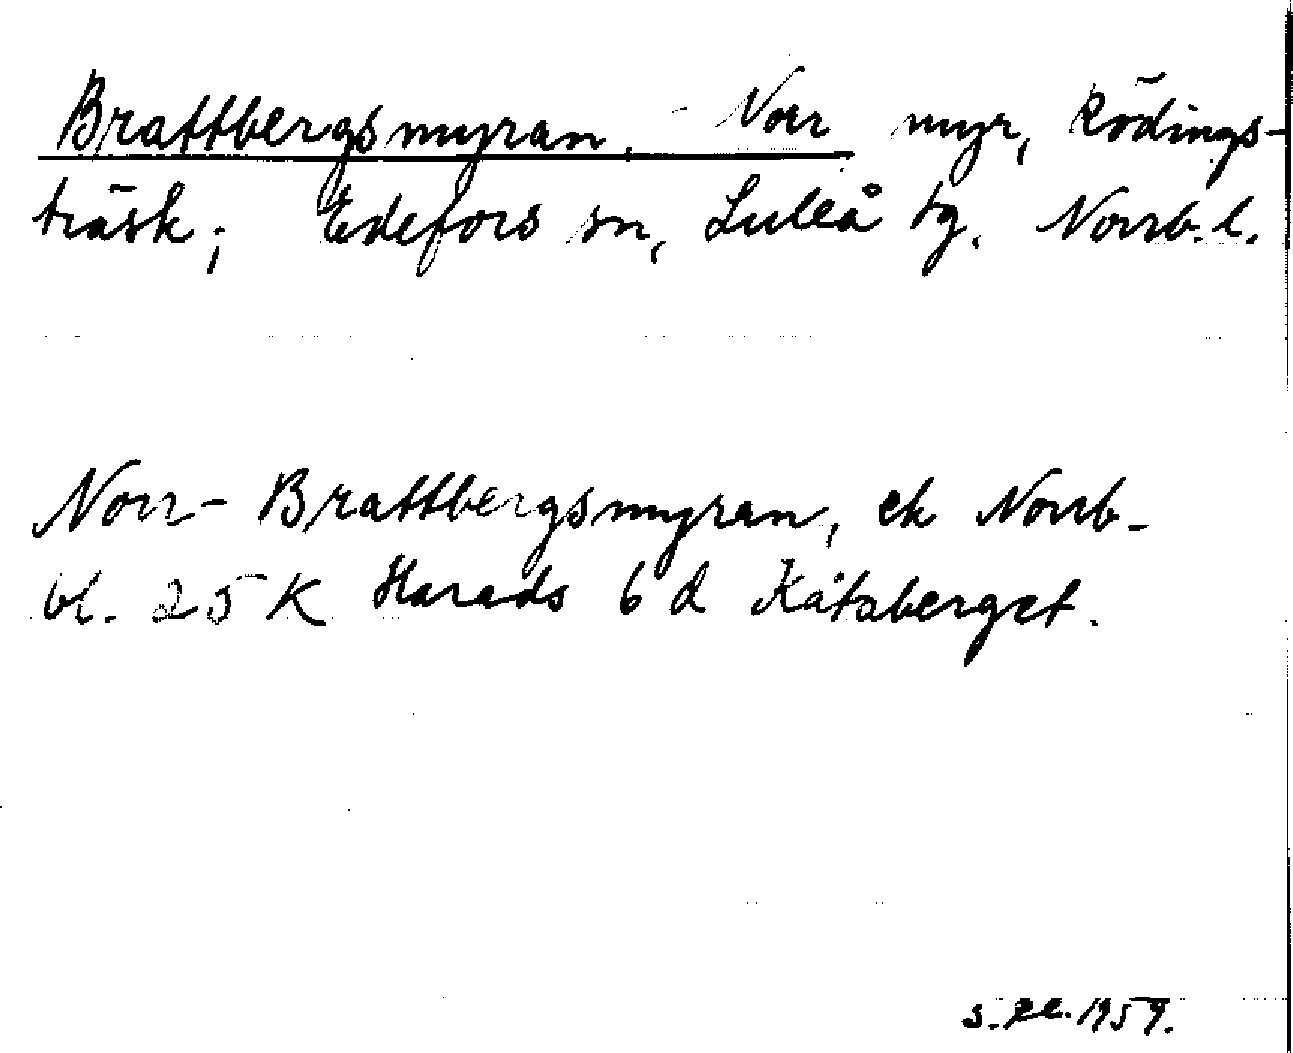 Brattbergsmyran, - Norr myr, Rödings-
träsk; Edefors sn, Luleå tg. Norrb. l.
Norr- Brattbergsmyran, ek Norrb-
bl. 25 K Harads 6 d Kåtaberget.
1959.